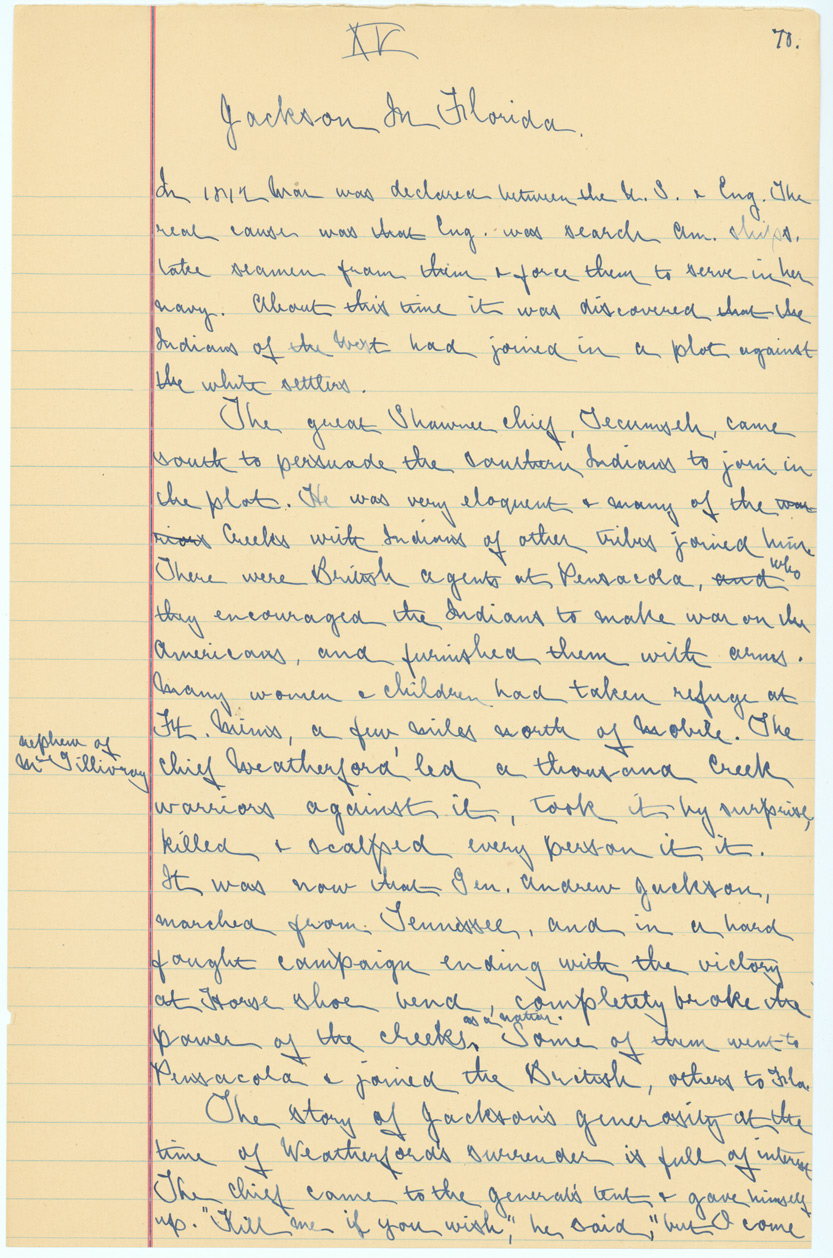 XV
70.
Jackson In Florida.
In 1812 War was declared between the U. S. & Eng. The
real cause was that Eng. was search Am. ships.
take seamen from them & force them to serve in her
navy. About this time it was discovered that the
Indians of the West had joined in a plot against
the white settlers.
The great Shawnee chief, Tecumseh, came
south to persuade the southern Indians to join in
the plot. He was very eloquent & many of the war
riors Creeks with Indians of other tribes joined him.
who
There were British agents at Pensacola, and
they encouraged the Indians to make war on the
Americans, and furnished them with arms.
Many women & children had taken refuge at
Ft. Mims, a few miles north of Mobile. The
nephew of
McGillivray
chief Weatherford led a thousand Creek
warriors against it, took it by surprise,
killed & scalped every person it it.
It was now that Gen. Andrew Jackson,
marched from Tennessee, and in a hard
fought campaign ending with the victory
at Horse shoe bend, completely broke the
as a nation.
power of the creeks. Some of them went to
Pensacola & joined the British, others to Fla.
The story of Jackson's generosity at the
time of Weatherford's surrender is full of interest
The chief came to the general's tent & gave himself
up. "Kill me if you wish", he said, "but I come